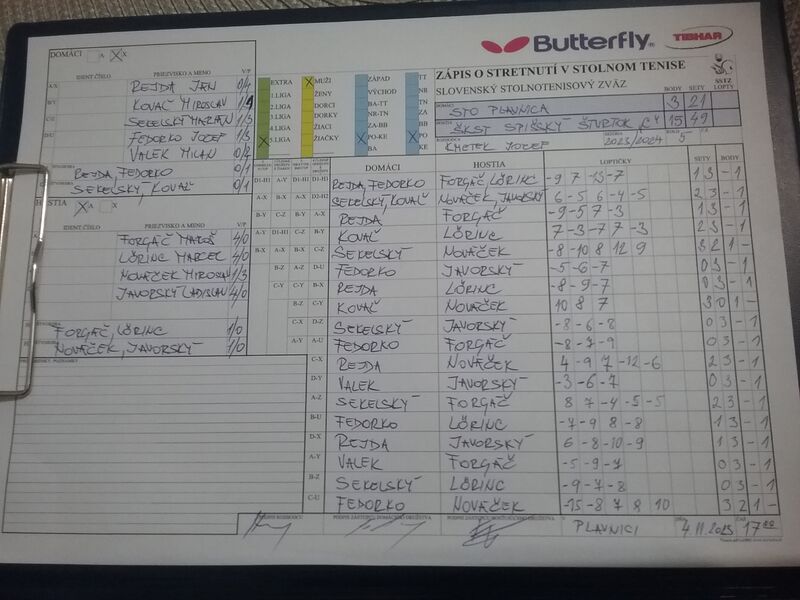 Butterfly
TIBHAR
DOMÁCI A X X
ZÁPIS O STRETNUTÍ V STOLNOM TENISE
SLOVENSKÝ STOLNOTENISOVÝ ZVÄZ
SSTZ
LOPTY
IDENT ČÍSLO PRIEZVISKO A MENO V/P
A/X REJDA JÁN 0/4
B/Y KOVAČ MIROSLAV 1/1
C/Z SEKELSKÝ MARIÁN 1/3
D/U FEDORKO JOZEF 1/3
VALEK MILAN 0/2
REJDA, FEDORKO 0/1
SEKELSKÝ, KOVAČ 0/1
EXTRA X MUŽI ZÁPAD TT
1.LIGA ŽENY VÝCHOD NR
2.LIGA DORCI BA-TT TN
3.LIGA DORKY NR-TN ZA
4.LIGA ŽIACI ZA-BB BB
X 5.LIGA ŽIAČKY X PO-KE X PO
BA KE
BODY SETY
DOMÁCI STO PLAVNICA 3 21
HOSTIA ŠKST SPIŠSKÝ ŠTVRTOK "C" 15 49
SEZÓNA 2023/2024 KOLO 5
ROZHODCA KMETEK JOZEF
HOSTIA X A X
IDENT ČÍSLO PRIEZVISKO A MENO V/P
FORGÁČ MATÚŠ 4/0
LÖRINC MARCEL 4/0
NOVÁČEK MIROSLAV 1/3
JAVORSKÝ LADISLAV 4/0
FORGÁČ, LÖRINC 1/0
NOVÁČEK, JAVORSKÝ 1/0
PRIPOMIENKY, POZNÁMKY
DOMÁCI HOSTIA LOPTIČKY SETY BODY
REJDA, FEDORKO FORGÁČ, LÖRINC -9 7 -13 -7 1 3 - 1
SEKELSKÝ, KOVAČ NOVÁČEK, JAVORSKÝ 6 -5 6 -4 -5 2 3 - 1
REJDA FORGÁČ -9 -5 7 -3 1 3 - 1
KOVAČ LÖRINC 7 -3 -7 7 -3 2 3 - 1
SEKELSKÝ NOVÁČEK -8 -10 8 12 9 3 2 1 -
FEDORKO JAVORSKÝ -5 -6 -7 0 3 - 1
REJDA LÖRINC -8 -9 -7 0 3 - 1
KOVAČ NOVÁČEK 10 8 7 3 0 1 -
SEKELSKÝ JAVORSKÝ -8 -6 -8 0 3 - 1
FEDORKO FORGÁČ -8 -7 -9 0 3 - 1
C-X REJDA NOVÁČEK 4 -9 7 -12 -6 2 3 - 1
D-Y VALEK JAVORSKÝ -3 -6 -7 0 3 - 1
A-Z SEKELSKÝ FORGÁČ 8 7 -4 -5 -5 2 3 - 1
B-U FEDORKO LÖRINC -7 -9 8 -8 1 3 - 1
D-X REJDA JAVORSKÝ 6 -8 -10 -9 1 3 - 1
A-Y VALEK FORGÁČ -5 -9 -7 0 3 - 1
B-Z SEKELSKÝ LÖRINC -9 -7 -8 0 3 - 1
C-U FEDORKO NOVÁČEK -15 -8 7 8 10 3 2 1 -
PODPIS ROZHODCU PODPIS ZÁSTUPCU DOMÁCEHO DRUŽSTVA PODPIS ZÁSTUPCU HOSŤUJÚCEHO DRUŽSTVA V PLAVNICI DŇA 4.11.2023 ČAS 17 00